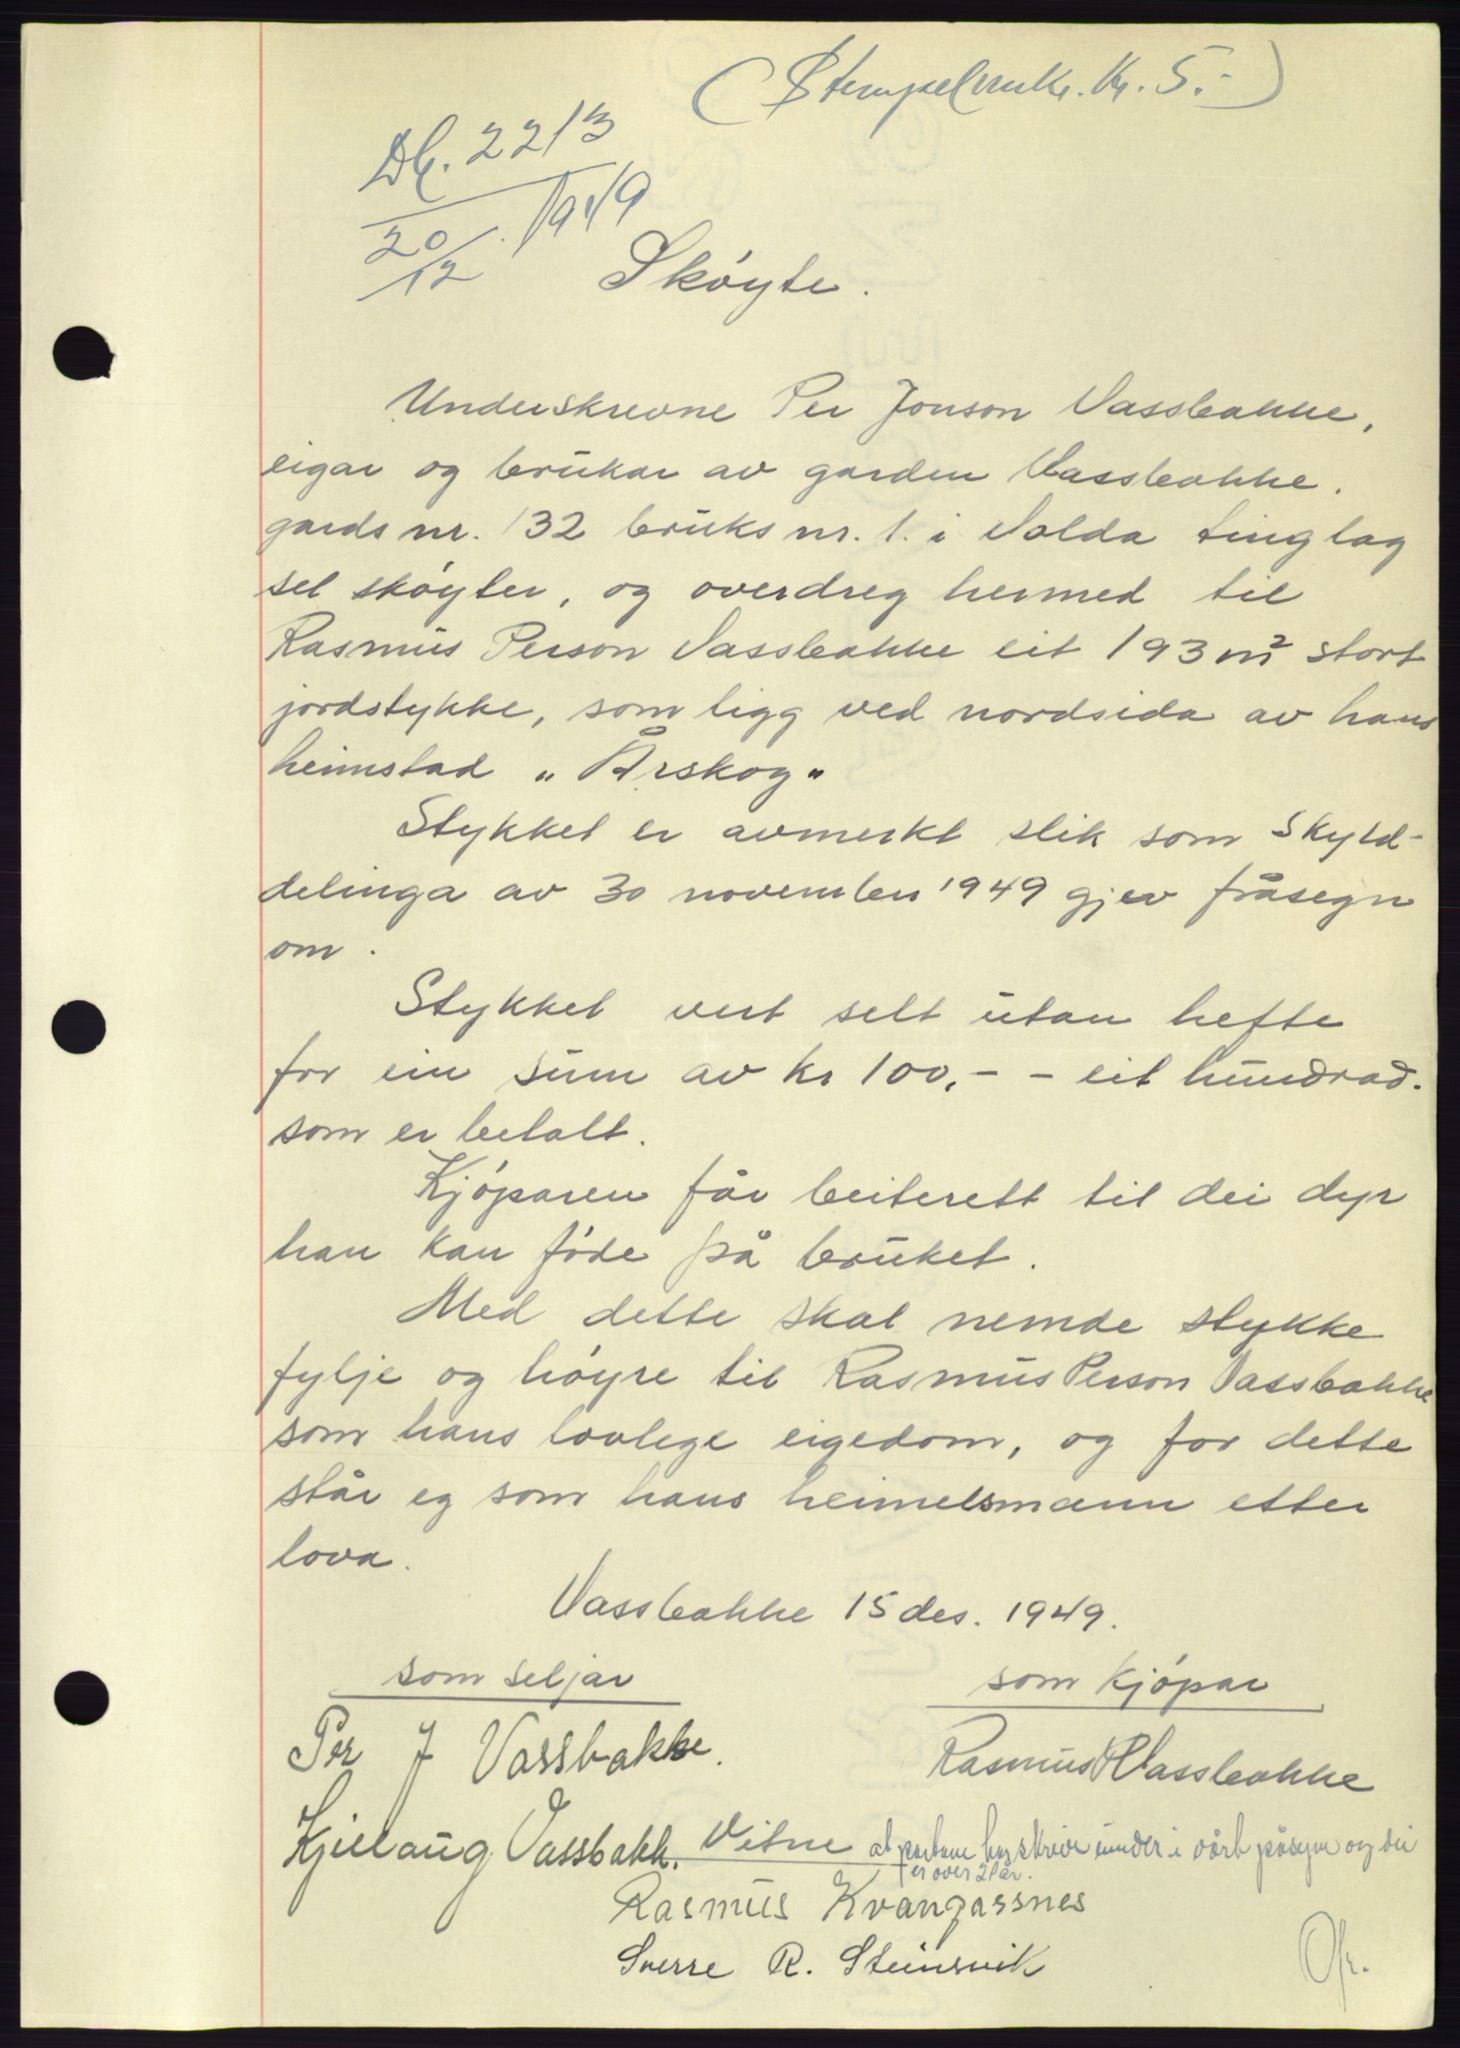 (Stempelmrk. Kr. 5.-)
Db. 2213
20/12. 1949
Skøyte.
Underskrevne Per Jonson Vassbakke,
eigar og brukar av garden Vassbakke.
gards nr. 132 bruks nr. 1. i Volda tinglag
sel skøyter, og overdreg hermed til
Rasmus Person Vassbakke eit 193 m² stort
jordstykke, som ligg ved nordsida av hans
heimstad „Årskog„
Stykket er avmerkt slik som Skyld-
delinga av 30 november 1949 gjev fråsegn
om.
Stykket vert selt utan hefte
for ein sum av kr 100,- - eit hundrad.
som er betalt.
Kjøparen får beiterett til dei dyr
han kan føde på bruket.
Med dette skal nemde stykke
fylje og høyre til Rasmus Person Vassbakke
som hans lovlege eigedom, og for dette
står eg som hans heimelsmann etter
lova.
Vassbakke 15 des. 1949.
som seljar som kjøpar
Per J Vassbakke. Rasmus P Vassbakke
Kjellaug Vassbakk. Vitne at partane har skrive under i vårt påsyn og dei
er over 21 år.
Rasmus Kvangarsnes
Sverre R. Steinsvik